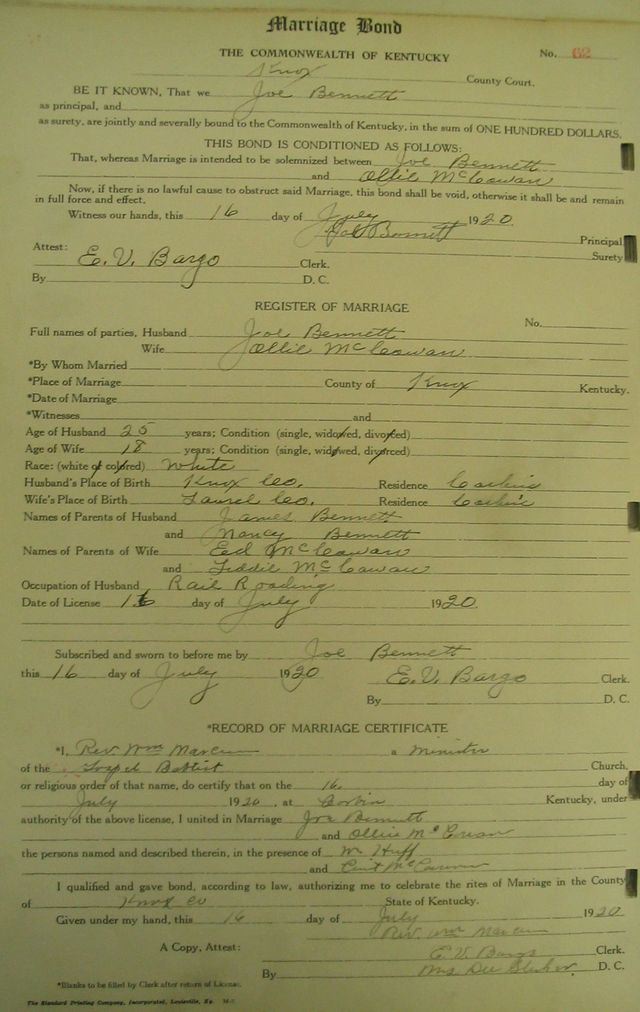 Marriage Bond
THE COMMONWEALTH OF KENTUCKY No. 62
Knox County Court.
BE IT KNOWN, That we Joe Bennett
as principal, and
as surety, are jointly and severally bound to the Commonwealth of Kentucky, in the sum of ONE HUNDRED DOLLARS.
THIS BOND IS CONDITIONED AS FOLLOWS:
That, whereas Marriage is intended to be solemnized between Joe Bennett
and Ollie McCowan
Now, if there is no lawful cause to obstruct said Marriage, this bond shall be void, otherwise it shall be and remain
in full force and effect.
Witness our hands, this 16 day of July 1920.
Joe Bennett Principal
Attest: Surety
E. V. Bargo Clerk.
By D. C.
REGISTER OF MARRIAGE
No.
Full names of parties, Husband Joe Bennett
Wife Ollie McCowan
*By Whom Married
*Place of Marriage County of Knox Kentucky.
*Date of Marriage
*Witnesses and
Age of Husband 25 years; Condition (single, widowed, divorced)
Age of Wife 18 years; Condition (single, widowed, divorced)
Race: (white or colored) White
Husband's Place of Birth Knox Co. Residence Corbin
Wife's Place of Birth Laurel Co. Residence Corbin
Names of Parents of Husband James Bennett
and Nancy Bennett
Names of Parents of Wife Ed McCowan
and Liddie McCowan
Occupation of Husband Rail Roading
Date of License 16 day of July 1920.
Subscribed and sworn to before me by Joe Bennett
this 16 day of July 1920 E. V. Bargo Clerk.
By D. C.
*RECORD OF MARRIAGE CERTIFICATE
*I, Rev. Wm Marcum a Minister
of the Gospel Baptist Church,
or religious order of that name, do certify that on the 16. day of
July 1920, at Corbin Kentucky, under
authority of the above license, I united in Marriage Joe Bennett
and Ollie
the persons named and described therein, in the presence of Wm Huff
and
I qualified and gave bond, according to law, authorizing me to celebrate the rites of Marriage in the County
of Knox Co State of Kentucky.
Given under my hand, this 16 day of July 1920
Rev. Wm Marcum
A Copy, Attest: E. V. Bargo Clerk.
By Mrs Dee D. C.
*Blanks to be filled by Clerk after return of License.
The Standard Printing Company, Incorporated, Louisville, Ky.